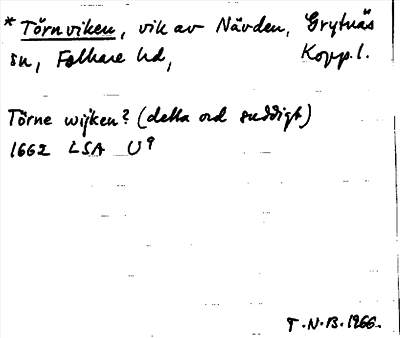 * Törnviken, vik av Nävden, Grytnäs
sn, Folkare hd, Kopp.l.
Törne wijken? (detta ord suddigt)
1662 LSA U9
T.N.B. 1966.